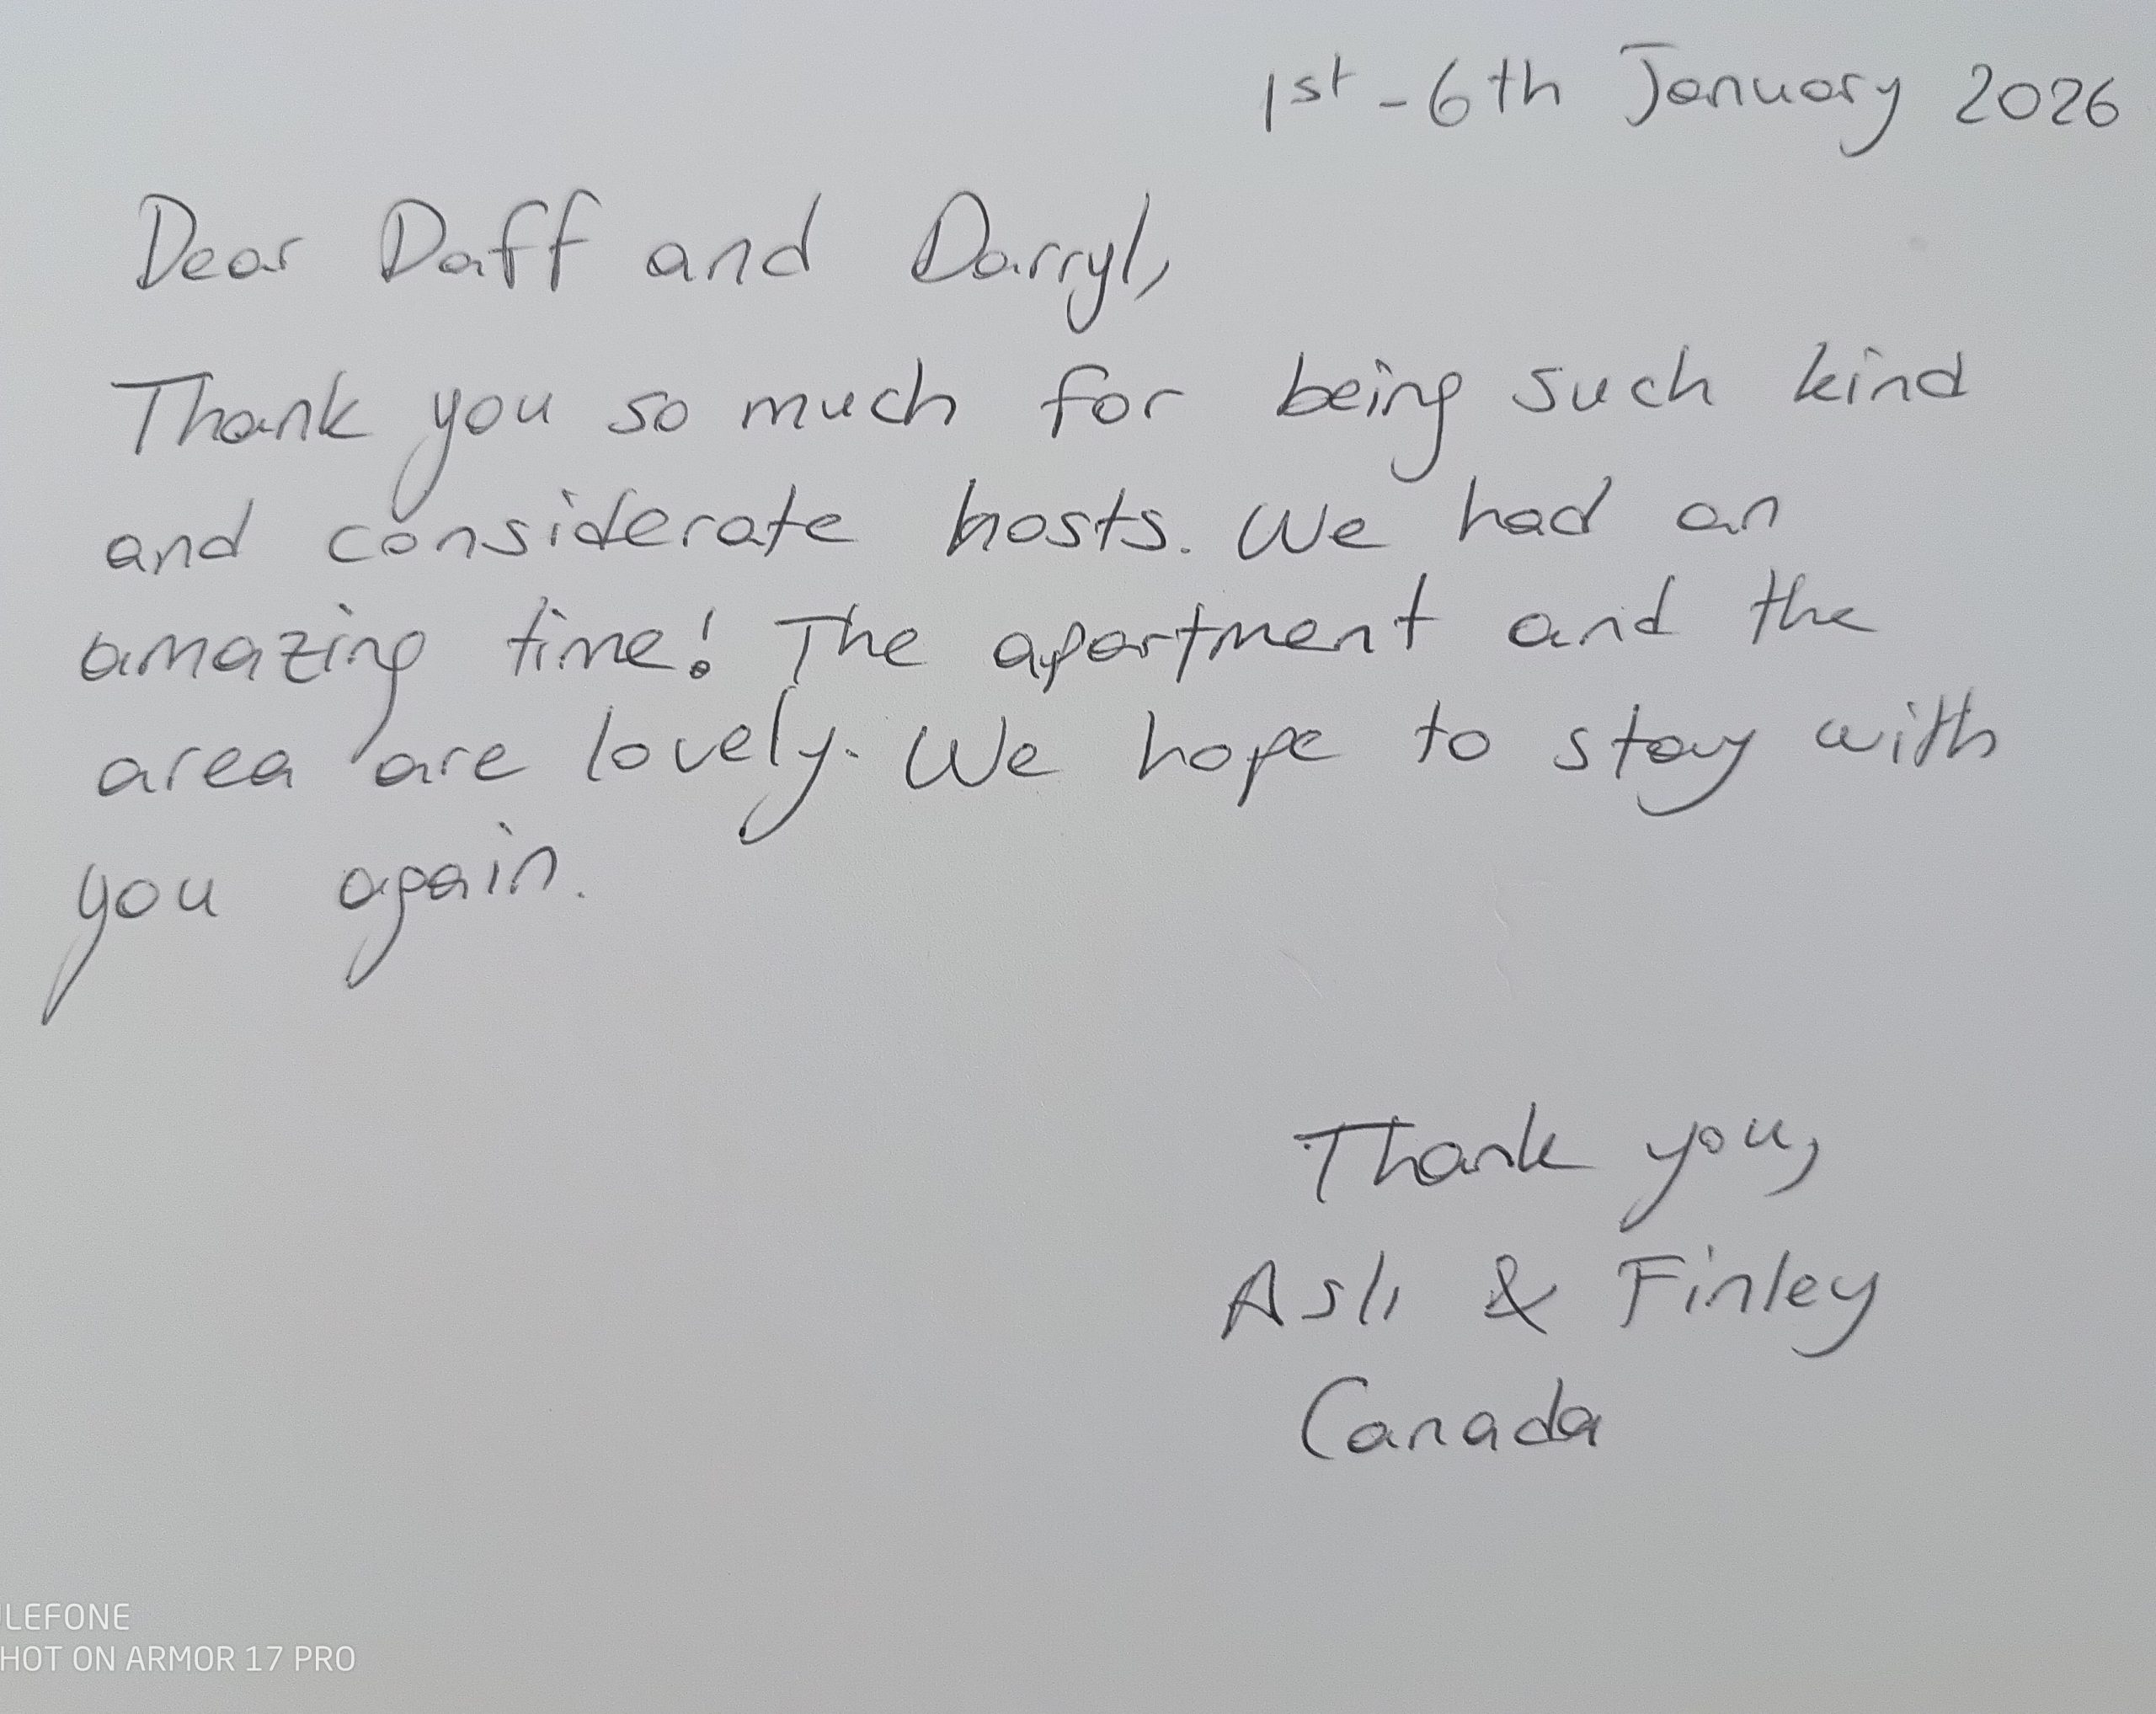 1st - 6th January 2026
Dear Daff and Darryl,
Thank you so much for being such kind
and considerate hosts. We had an
amazing time! The apartment and the
area are lovely. We hope to stay with
you again.
Thank you,
Aslı & Finley
Canada
LEFONE
HOT ON ARMOR 17 PRO